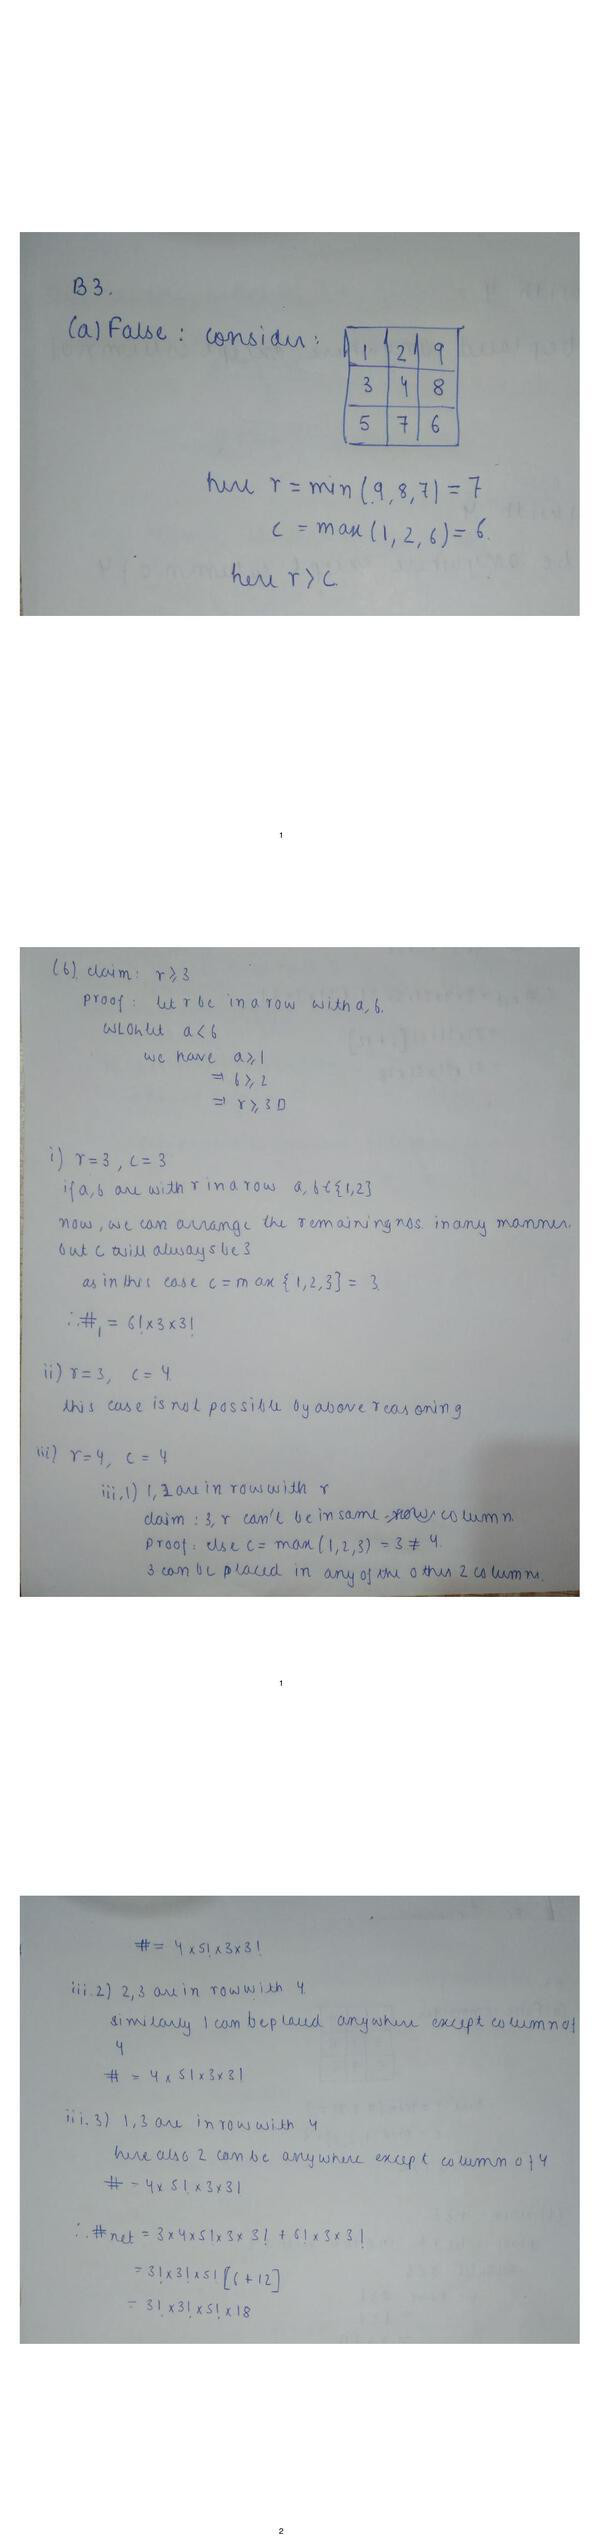 B3.
(a) False : consider :
1 2 9
3 4 8
5 7 6
here r = min (9, 8, 7) = 7
c = max (1, 2, 6) = 6.
here r > c
1
(b) claim: r ≥ 3
proof : let r be in a row with a, b.
WLOG let a < b
we have a ≥ 1
⇒ b ≥ 2
⇒ r ≥ 3 □
i) r = 3 , c = 3
if a, b are with r in a row a, b ∈ {1, 2}
now, we can arrange the remaining nos. in any manner.
but c will always be 3
as in this case c = max {1, 2, 3} = 3.
∴ #₁ = 6! × 3 × 3!
ii) r = 3, c = 4.
this case is not possible by above reasoning
iii) r = 4, c = 4
iii.1) 1, 2 are in row with r
claim : 3, r can't be in same column.
proof : else c = max (1, 2, 3) = 3 ≠ 4.
3 can be placed in any of the other 2 columns.
1
# = 4 × 5! × 3 × 3!
iii.2) 2, 3 are in row with 4.
similarly 1 can be placed anywhere except column of
4
# = 4 × 5! × 3 × 3!
iii.3) 1, 3 are in row with 4
here also 2 can be anywhere except column of 4
# = 4 × 5! × 3 × 3!
∴ # net = 3 × 4 × 5! × 3 × 3! + 6! × 3 × 3!
= 3! × 3! × 5! [6 + 12]
= 3! × 3! × 5! × 18
2